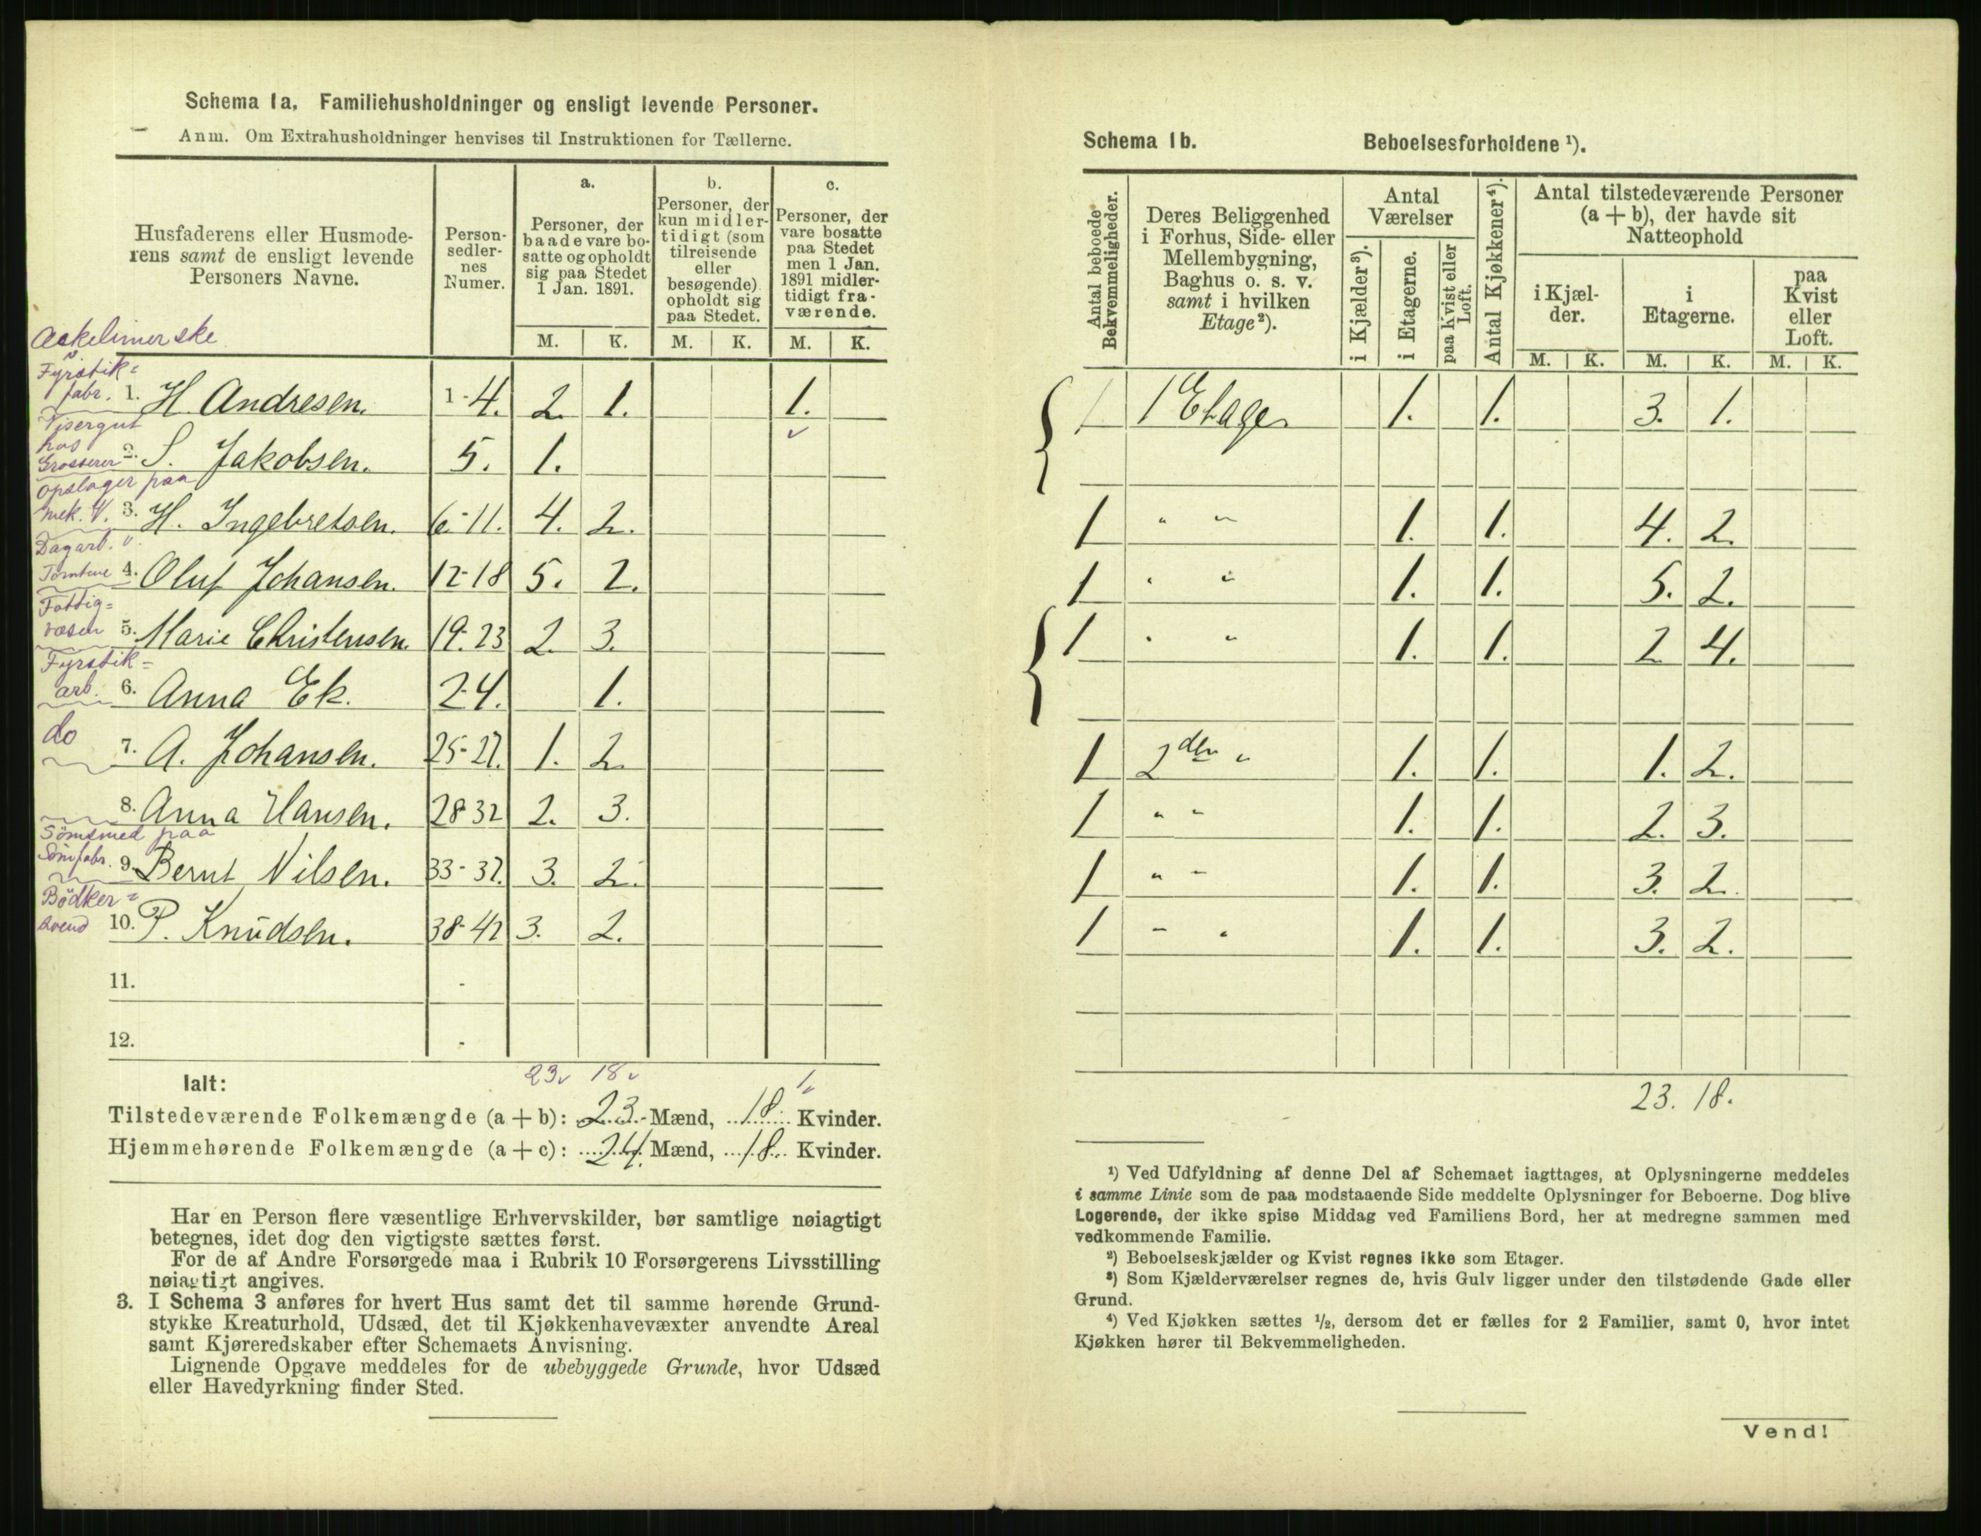 Schema 1a. Familiehusholdninger og ensligt levende Personer.
Anm. Om Extrahusholdninger henvises til Instruktionen for Tællerne.
Husfaderens eller Husmode-
rens samt de ensligt levende
Personers Navne.
Person-
sedler-
nes
Numer.
a.
Personer, der
baade vare bo-
satte og opholdt
sig paa Stedet
1 Jan. 1891.
b.
Personer, der
kun midler-
tidigt (som
tilreisende
eller
besøgende)
opholdt sig
paa Stedet.
c.
Personer, der
vare bosatte
paa Stedet
men 1 Jan.
1891 midler-
tidigt fra-
værende.
M. K. M. K. M. K.
Fyrstik=
fabr. 1. H. Andresen. 1-4. 2. 1. 1.
Visergut
hos
Grosserer 2. S. Jakobsen. 5. 1.
Opslager paa
mek. V. 3. H. Ingebretsen. 6-11. 4. 2.
Dagarb. v.
Tomtene 4. Oluf Johansen. 12-18 5. 2.
Fattig=
væsen 5. Marie Christensen. 19-23 2. 3.
Fyrstik=
arb. 6. Anna Ek. 24. 1.
do 7. A. Johansen. 25-27. 1. 2.
8. Anna Hansen. 28-32 2. 3.
Sömsmed paa
Sömfabr. 9. Bernt Nilsen. 33-37. 3. 2.
Bödker=
svend 10. P. Knudsen. 38-42 3. 2.
11. -
12. -
23 18 1
Ialt:
Tilstedeværende Folkemængde (a + b): 23 Mænd, 18 Kvinder.
Hjemmehørende Folkemængde (a + c): 24. Mænd, 18. Kvinder.
Har en Person flere væsentlige Erhvervskilder, bør samtlige nøiagtigt
betegnes, idet dog den vigtigste sættes først.
For de af Andre Forsørgede maa i Rubrik 10 Forsørgerens Livsstilling
nøiagtigt angives.
3. I Schema 3 anføres for hvert Hus samt det til samme hørende Grund-
stykke Kreaturhold, Udsæd, det til Kjøkkenhavevæxter anvendte Areal
samt Kjøreredskaber efter Schemaets Anvisning.
Lignende Opgave meddeles for de ubebyggede Grunde, hvor Udsæd
eller Havedyrkning finder Sted.
Schema 1b. Beboelsesforholdene ¹).
Antal beboede
Bekvemmeligheder.
Deres Beliggenhed
i Forhus, Side- eller
Mellembygning,
Baghus o. s. v.
samt i hvilken
Etage²).
Antal
Værelser
i Kjælder³).
i Etagerne.
paa Kvist eller
Loft.
Antal Kjøkkener⁴).
Antal tilstedeværende Personer
(a + b), der havde sit
Natteophold
i Kjæl-
der.
i
Etagerne.
paa
Kvist
eller
Loft.
M. K. M. K. M. K.
1 1 Etage 1. 1. 3. 1.
1 " " 1. 1. 4. 2.
1 " " 1. 1. 5. 2.
1 " " 1. 1. 2 4.
1 2den " 1. 1. 1. 2.
1 " " 1. 1. 2. 3.
1 " " 1. 1. 3. 2.
1 " " 1. 1. 3. 2.
23. 18.
¹) Ved Udfyldning af denne Del af Schemaet iagttages, at Oplysningerne meddeles
i samme Linie som de paa modstaaende Side meddelte Oplysninger for Beboerne. Dog blive
Logerende, der ikke spise Middag ved Familiens Bord, her at medregne sammen med
vedkommende Familie.
²) Beboelseskjælder og Kvist regnes ikke som Etager.
³) Som Kjælderværelser regnes de, hvis Gulv ligger under den tilstødende Gade eller
Grund.
⁴) Ved Kjøkken sættes ½, dersom det er fælles for 2 Familier, samt 0, hvor intet
Kjøkken hører til Bekvemmeligheden.
Vend!